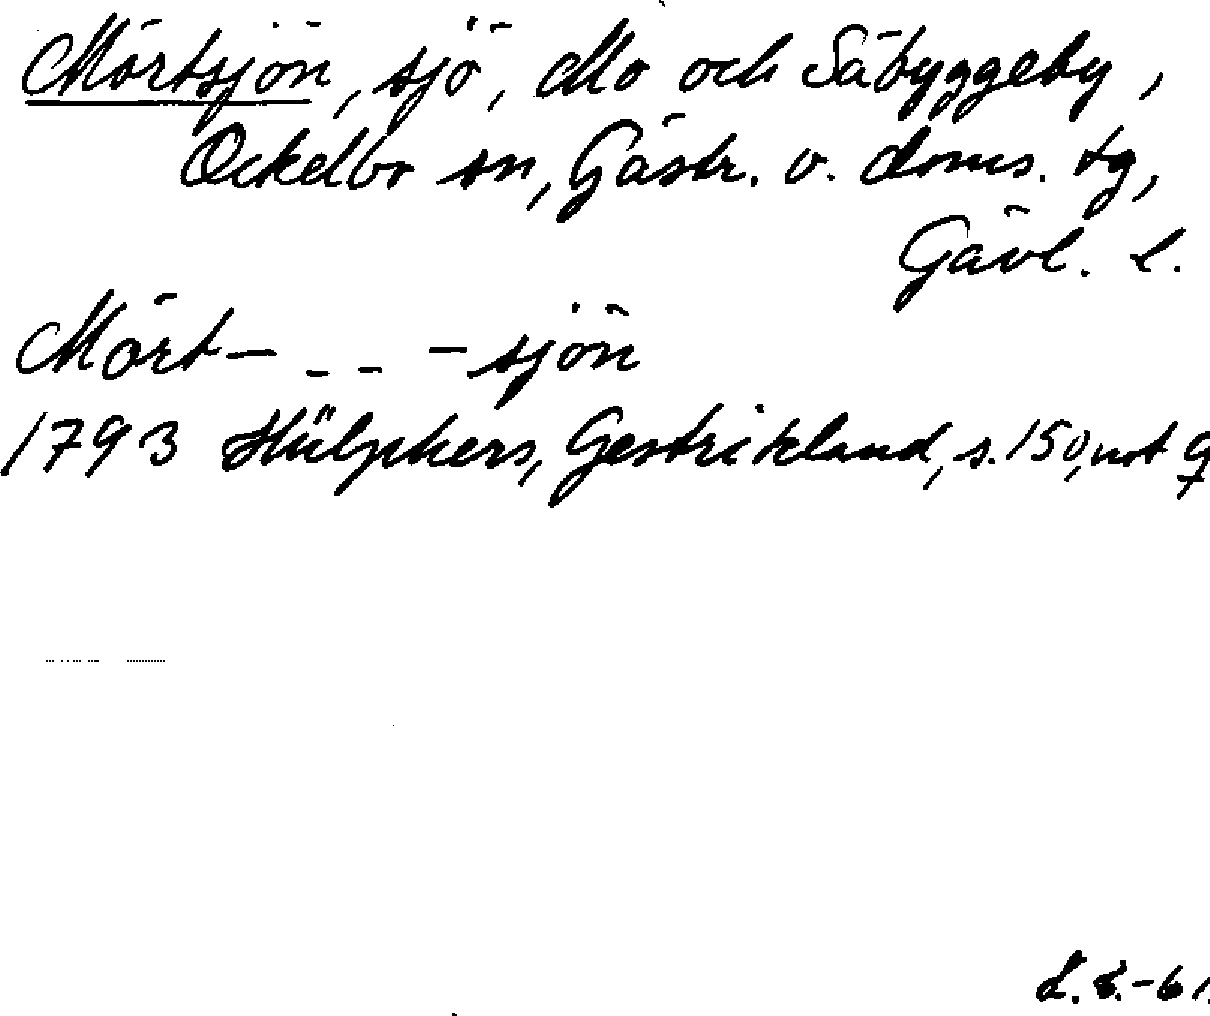 Mörtsjön, sjö, Mo och Säbyggeby,
Ockelbo sn, Gästr. v. doms. tg,
Gävl. l.
Mört- - - -sjön
1793 Hülphers, Gestrikland, s. 150, not g
-61.